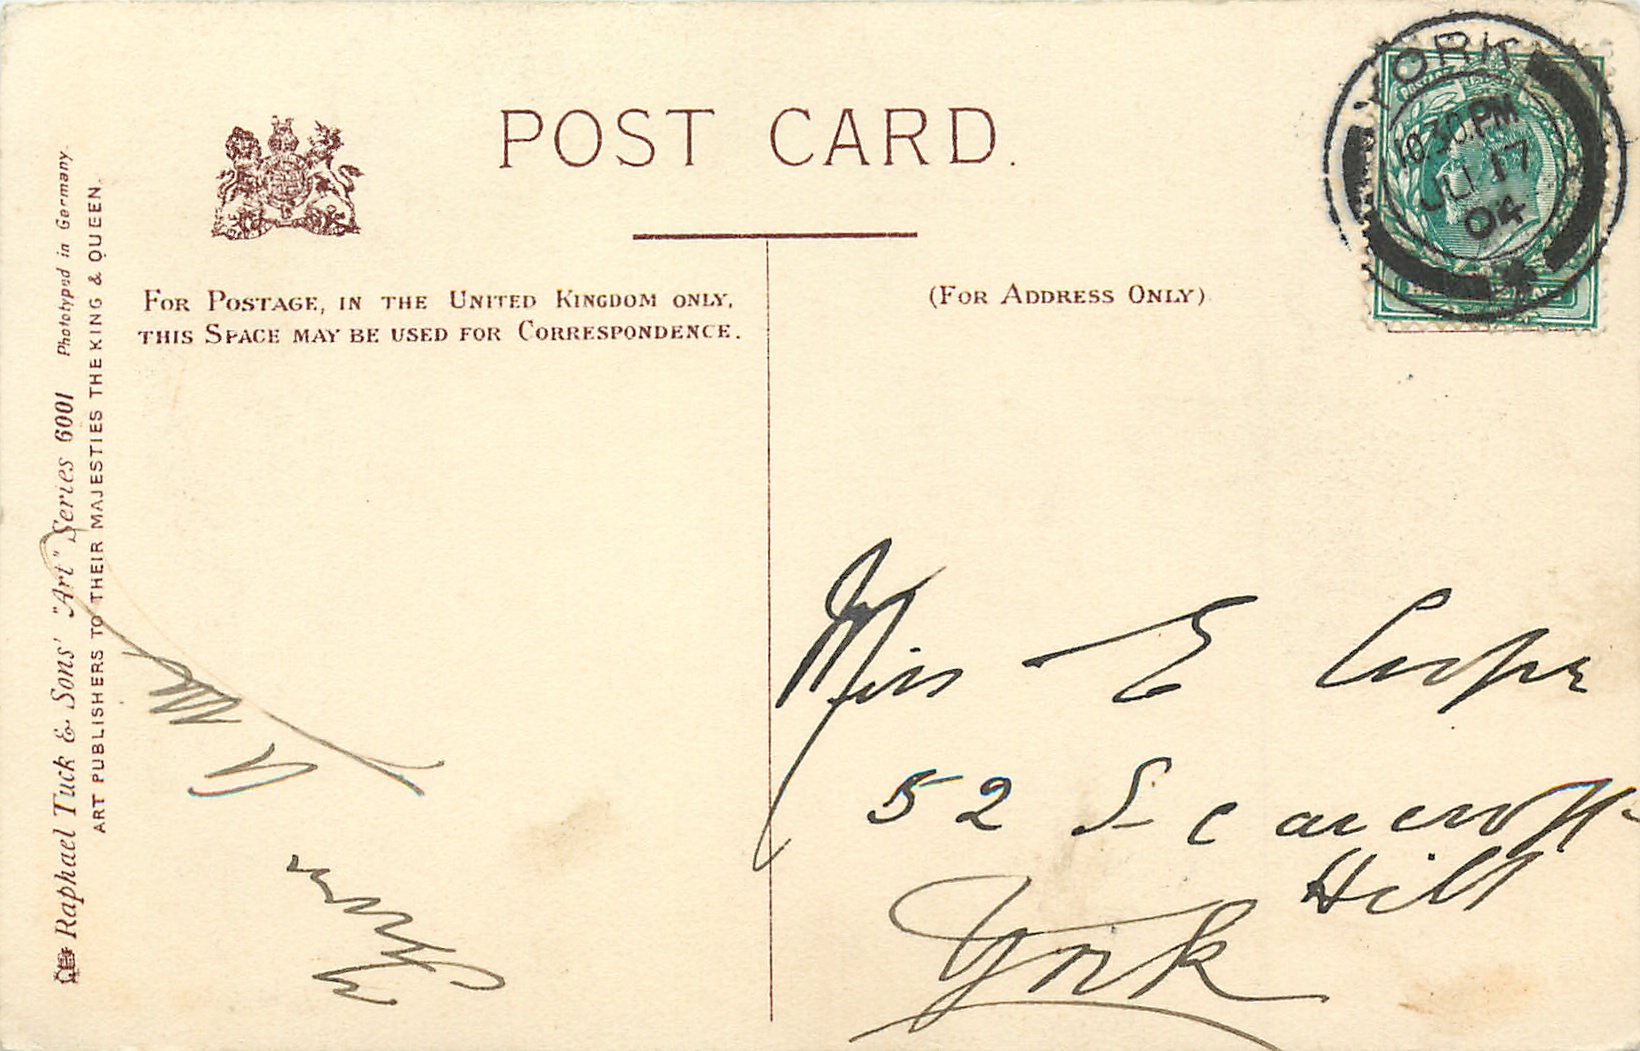 POST CARD.
FOR POSTAGE, IN THE UNITED KINGDOM ONLY,
THIS SPACE MAY BE USED FOR CORRESPONDENCE.
(FOR ADDRESS ONLY)
YORK
10.30.PM
JU 17
04
Raphael Tuck & Sons' "Art" Series 6001 Photochromed in Germany
ART PUBLISHERS TO THEIR MAJESTIES THE KING & QUEEN.
From
Miss E Cooper
52 Scarcroft
Hill
York